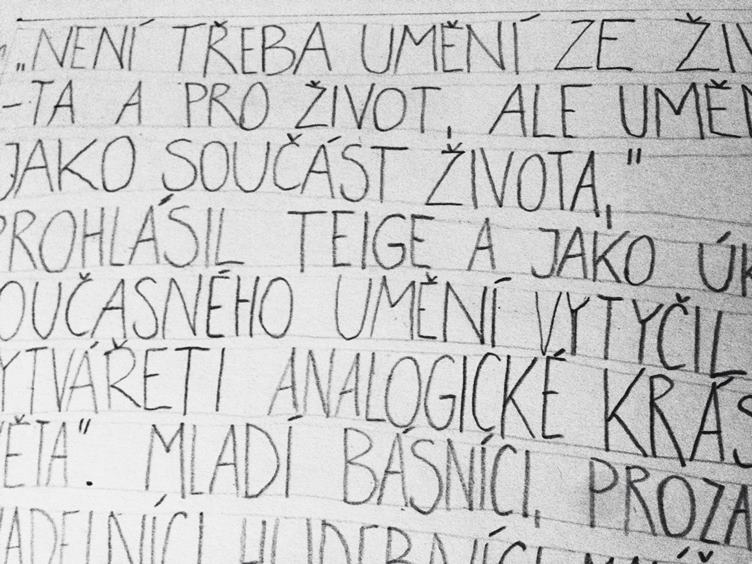 „NENÍ TŘEBA UMĚNÍ ZE ŽIV
-TA A PRO ŽIVOT, ALE UMĚN
JAKO SOUČÁST ŽIVOTA,"
PROHLÁSIL TEIGE A JAKO ÚK
OUČASNÉHO UMĚNÍ VYTYČIL
YTVÁŘETI ANALOGICKÉ KRÁS
ĚTA". MLADÍ BÁSNÍCI, PROZA
ADELNÍCI HUDEBNÍCI